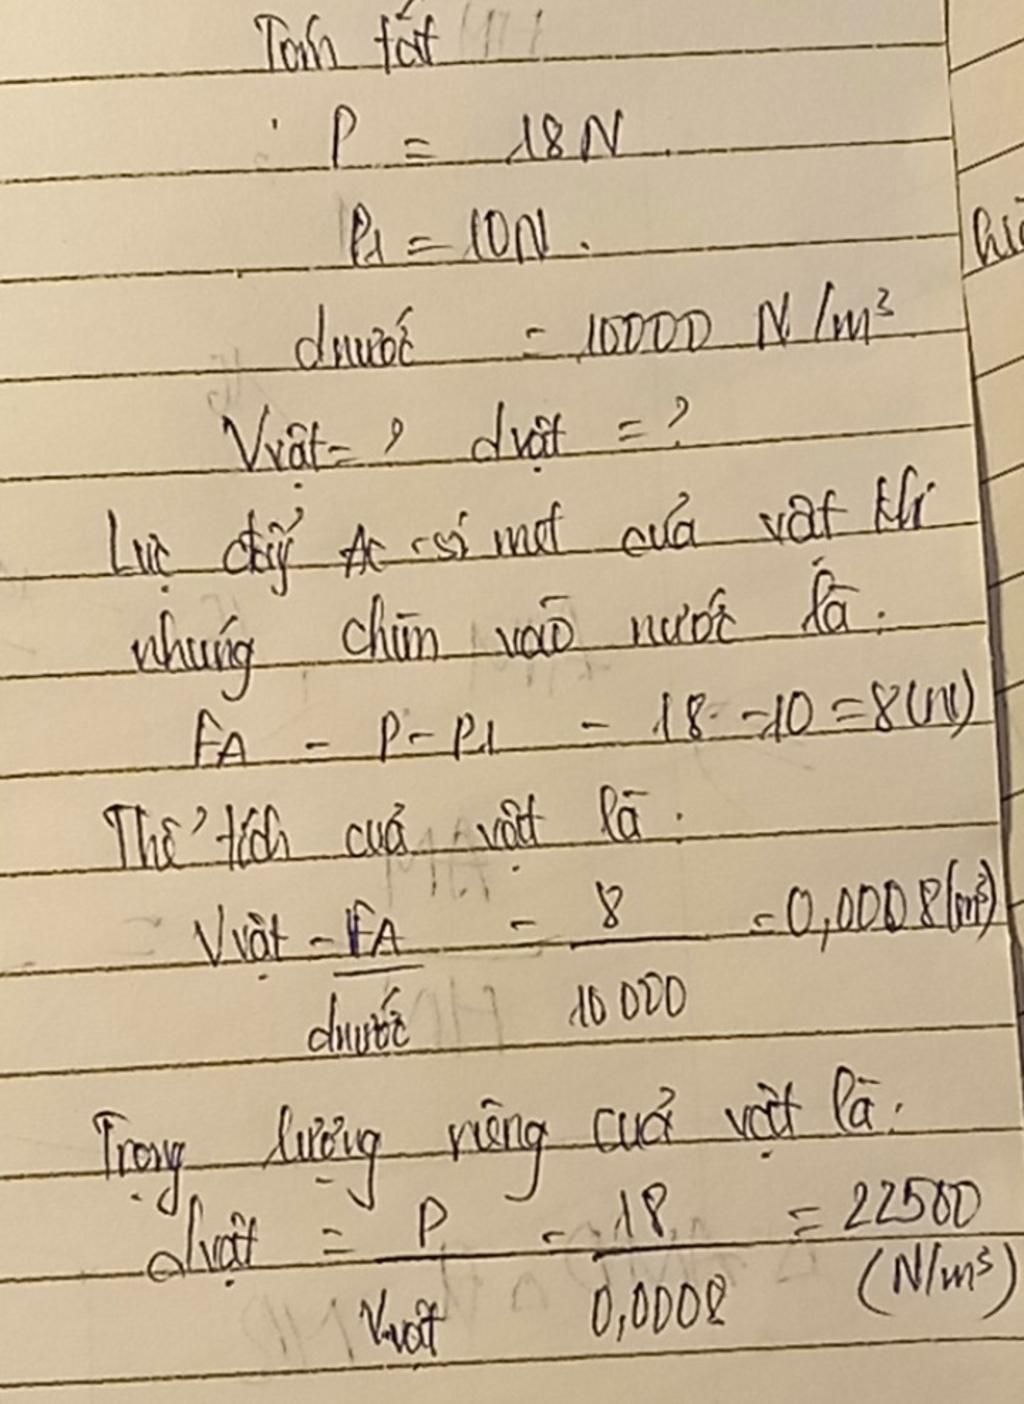 Tóm tắt
P = 18N
P1 = 10N.
dnước = 10000 N/m³
Vvật = ? dvật = ?
Lực đẩy Ác-si mét của vật khi
nhúng chìm vào nước là:
FA = P - P1 = 18 - 10 = 8(N)
Thể tích của vật là:
Vvật = FA / dnước = 8 / 10 000 = 0,0008(m³)
Trọng lượng riêng của vật là:
dvật = P / Vvật = 18 / 0,0008 = 22500 (N/m³)